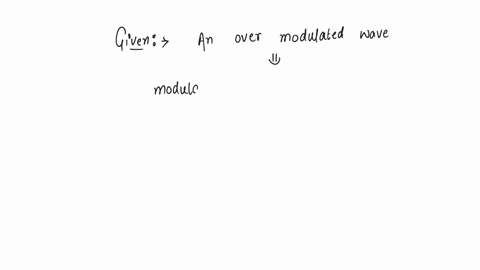 Given:→ An over modulated wave
⇓
modula